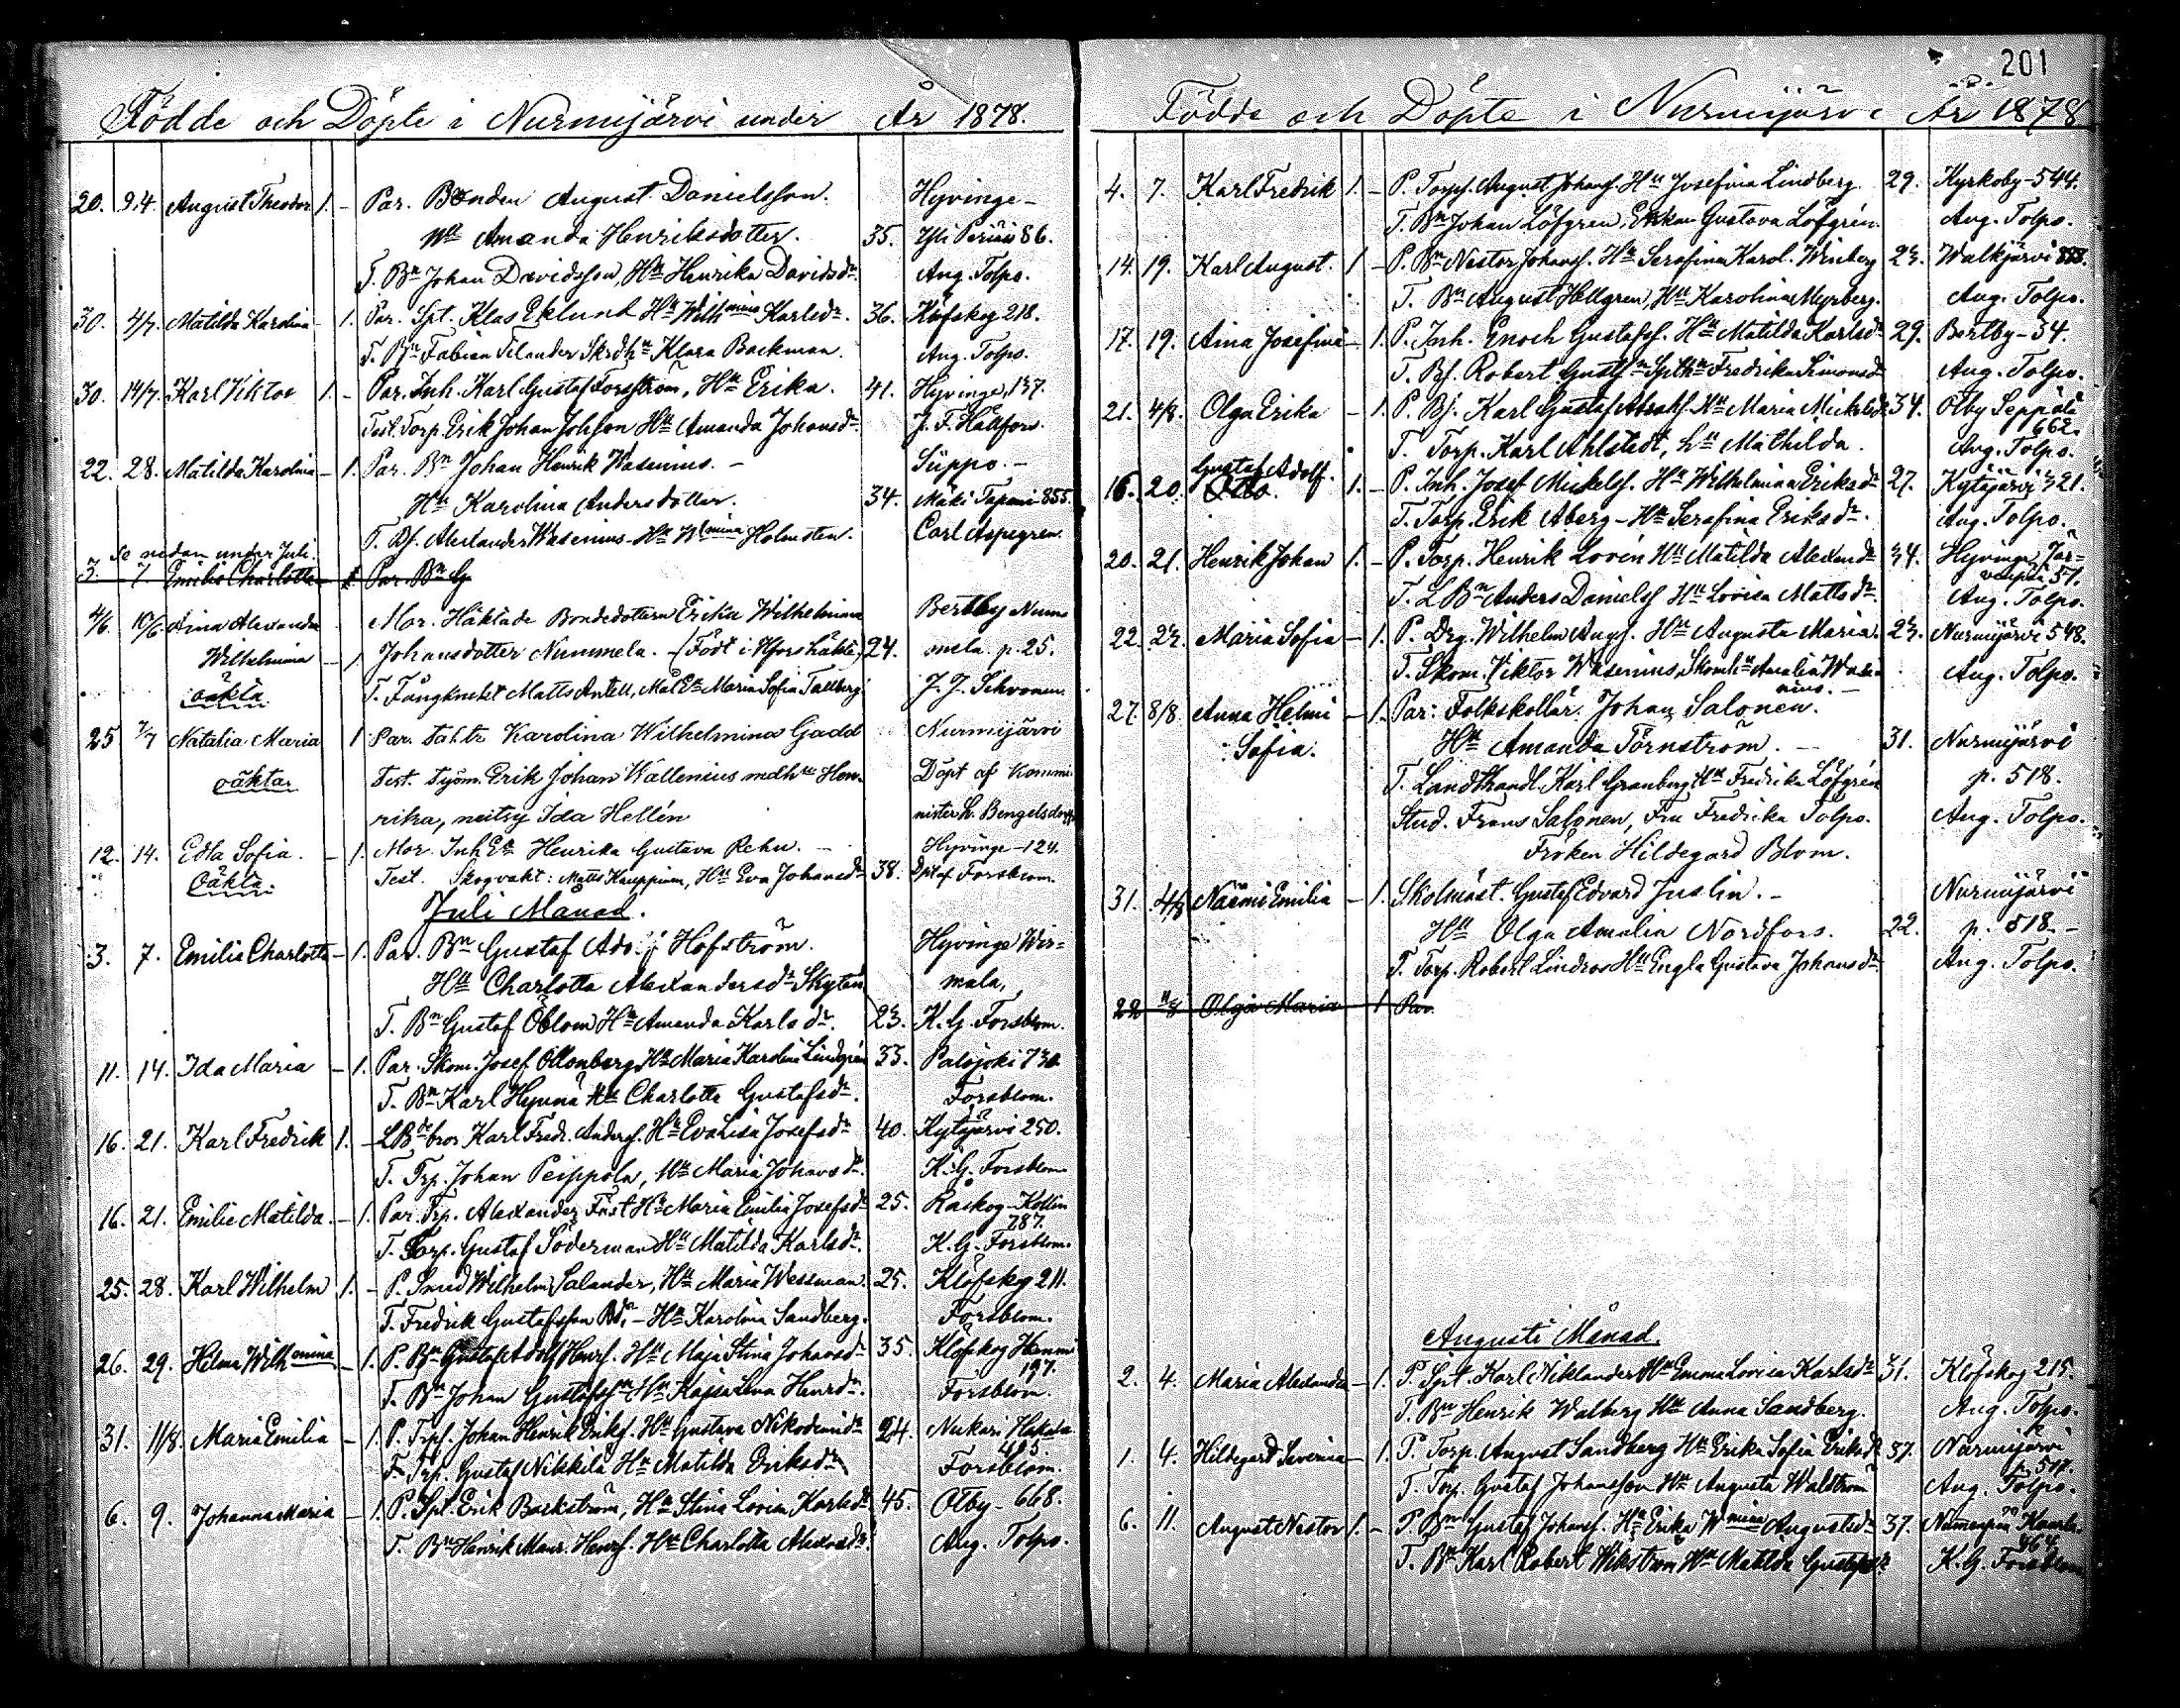 Födde och Döpte i Nurmijärvi under År 1878.
20. 9.4. August Theodor 1. - Par. Bonden August Danielsson. Hyvinge-
Hu Amanda Henriksdotter. 35. Yli Perius 86.
T. Bn Johan Davidsson, Hu Henrika Davidsdr. Aug. Tolpo.
30. 4/7. Matilda Karolina - 1. Par. Spt. Klas Eklund Hu Wilhmina Karlsdr. 36. Klöfskog 218.
T. Bn Fabian Silander Skrdhu Klara Backman. Aug. Tolpo.
30. 14/7. Karl Viktor 1. - Par. Inh. Karl Gustaf Forsström, Hu Erika. 41. Hyvinge, 137.
Test. Torp. Erik Johan Johsson Hu Amanda Johansdr. J. F. Hällfors.
22. 28. Matilda Karolina - 1. Par. Bn Johan Henrik Wasenius. - Siippo. -
Hu Karolina Andersdotter. 34. Mäki Tapani 855.
T. Bf. Alexander Wasenius Hu Wmina Holmsten. Carl Aspegren.
Se nedan under Juli.
3. 7. Emilia Charlotta 1 Par. Bn G
4/6. 10/6. Aina Alexandra Mor. Häktade Bondedottern Erika Wilhelmina Bertby Numme
Wilhelmina - 1 Johansdotter Nummela. - (Född i Hfors häkte) 24. mela. p. 25.
oäkta T. Fångknekt Matts Antell, Mål Ea Maria Sofia Tallberg J. J. Schvonen
25 7/7 Natalia Maria 1 Par. Karolina Wilhelmina Gadd Nurmijärvi
oäkta Test. Työm. Erik Johan Wallenius medhu Hen- Döpt af Kommi-
rika, neitsy Ida Hellén nister K. Bengelsdorff
12. 14. Edla Sofia. - 1. Mor. Inh Ea Henrika Gustava Rehn. - Hyvinge - 124.
Oäkta. Test. Skogvakt: Matts Kauppinen, Hu Eva Johansdr 38. Dpt af Forsblom.
Juli Månad.
3. 7. Emilia Charlotta - 1. Par. Bn Gustaf Adolf Hofström. Hyvinge Wir-
Hu Charlotta Alexandersdr Skytén mala,
T. Bn Gustaf Öblom Hu Amanda Karlsdr. 23. K. G. Forsblom.
11. 14. Ida Maria - 1. Par. Skom. Josef Ollonberg, Hu Maria Karolina Lindgrén 33. Palojoki 730
T. Bn Karl Hyvnä Hu Charlotta Gustafsdr. Forsblom.
16. 21. Karl Fredrik 1. - LBdebror Karl Fredr. Andersf. Hu Eva Lisa Josefsdr 40. Kytäjärvi 250.
T. Trp. Johan Peippola, Hu Maria Johansdr. K. G. Forsblom
16. 21. Emilie Matilda. - 1. Par. Trp. Alexander Fast Hu Maria Emilia Josefsdr 25. Raskog-Kollin
287.
T. Torp. Gustaf Söderman Hu Matilda Karlsdr. K. G. Forsblom.
25. 28. Karl Wilhelm 1. - P. Smed Wilhelm Salander, Hu Maria Wessman. 25. Klöfskog 211.
T. Fredrik Gustafsson Bd. - Hu Karolina Sandberg. Forsblom.
26. 29. Helma Wilhmina - 1. P. Bn Gustaf Adolf Henrf. Hu Maja Stina Johansdr 35. Klöfskog Hannu
197.
T. Bn Johan Gustafssn Hu Kajsa Lena Henrdr. Forsblom.
31. 11/8. Maria Emilia - 1. P. Trpf. Johan Henrik Eriksf. Hu Gustava Nikodemidr 24. Nukari Hakala
T. Trp. Gustaf Nikkilä Hu Matilda Eriksdr Forsblom.
6. 9. Johanna Maria - 1. P. Spt. Erik Backström, Hu Stina Lovisa Karlsdr 45. Olby - 668.
T. Bn Henrik Maur. Henrf. Hu Charlotta Alexndr. Aug. Tolpo.
201
Födde och Döpte i Nurmijärvi År 1878
4. 7. Karl Fredrik 1. - P. Torpf. August Johansf. Hu Josefina Lindberg. 29. Kyrkoby - 544.
T. Bn Johan Löfgren, Enkan Gustava Löfgrén. Aug. Tolpo.
14. 19. Karl August. 1 - P. Bn Nestor Johansf. Hu Serafina Karol. Winberg 23. Walkjärvi 888.
T. Bn August Hellgren, Hu Karolina Myrberg. Aug. Tolpo.
17. 19. Aina Josefina - 1. P. Inh. Enoch Gustafsf. Hu Matilda Karlsdr 29. Bertby - 34.
T. Bf. Robert Gustfn Spthu Fredrika Simonsdr Aug. Tolpo.
21. 4/8. Olga Erika - 1. P. Bf. Karl Gustaf Abrahf. Hu Maria Mickelsdr 34. Olby Seppälä
662.
T. Torp. Karl Ahlstedt, hu Mathilda. Aug. Tolpo.
Gustaf Adolf.
16. 20. Otto. 1. - P. Inh. Josef Mickelsf. Hu Wilhelmina Eriksdr 27. Kytäjärvi 321.
T. Torp. Erik Åberg - Hu Serafina Eriksdr. Aug. Tolpo.
20. 21. Henrik Johan 1. - P. Torp. Henrik Lovén Hu Matilda Alexandr 34. Hyvinge, Jär-
venpää 57.
T. L Bn Anders Danielsf Hu Lovisa Mattsdr. Aug. Tolpo.
22. 23. Maria Sofia - 1. P. Drg. Wilhelm Augf. Hu Augusta Maria. 23. Nurmijärvi 548.
T. Skom. Viktor Wasenius, Skomhu Amalia Wase-
nius. - Aug. Tolpo.
27. 8/8. Anna Helmi - 1. Par: Folkskollär. Johan Salonen.
Sofia. Hu Amanda Törnström. - 31. Nurmijärvi
T. Landthandl. Karl Granberg Hu Fredrika Löfgrén p. 518.
Stud. Frans Salonen, Fru Fredrika Tolpo. Aug. Tolpo.
Fröken Hildegard Blom.
31. 4/8 Naëmi Emilia - 1. Skolmäst. Gustaf Edvard Juslin. - Nurmijärvi
Hu Olga Amalia Nordfors. 22. p. 518. -
T. Torp. Robert Lindros Hu Engla Gustava Johansdr. Aug. Tolpo.
22 11/8 Olga Maria 1 Par
Augusti Månad.
2. 4. Maria Alexandra - 1. P. Spt. Karl Niklander Hu Emma Lovisa Karlsdr 31. Klöfskog 215.
T. Bn Henrik Walberg Hu Anna Sandberg. Aug. Tolpo.
1. 4. Hildegard Severina - 1. P. Torp. August Sandberg Hu Erika Sofia Eriksdr 37. Nurmijärvi
T. Torp. Gustaf Johansson Hu Augusta Waldström Aug. Tolpo.
6. 11. August Nestor 1. - P. Bn Gustaf Johansf. Hu Erika Wmina Augustsdr 37. Numenpää Kaarla.
464
T. Bn Karl Robert Wikström Hu Matilda Gustafsdr K. G. Forsblom